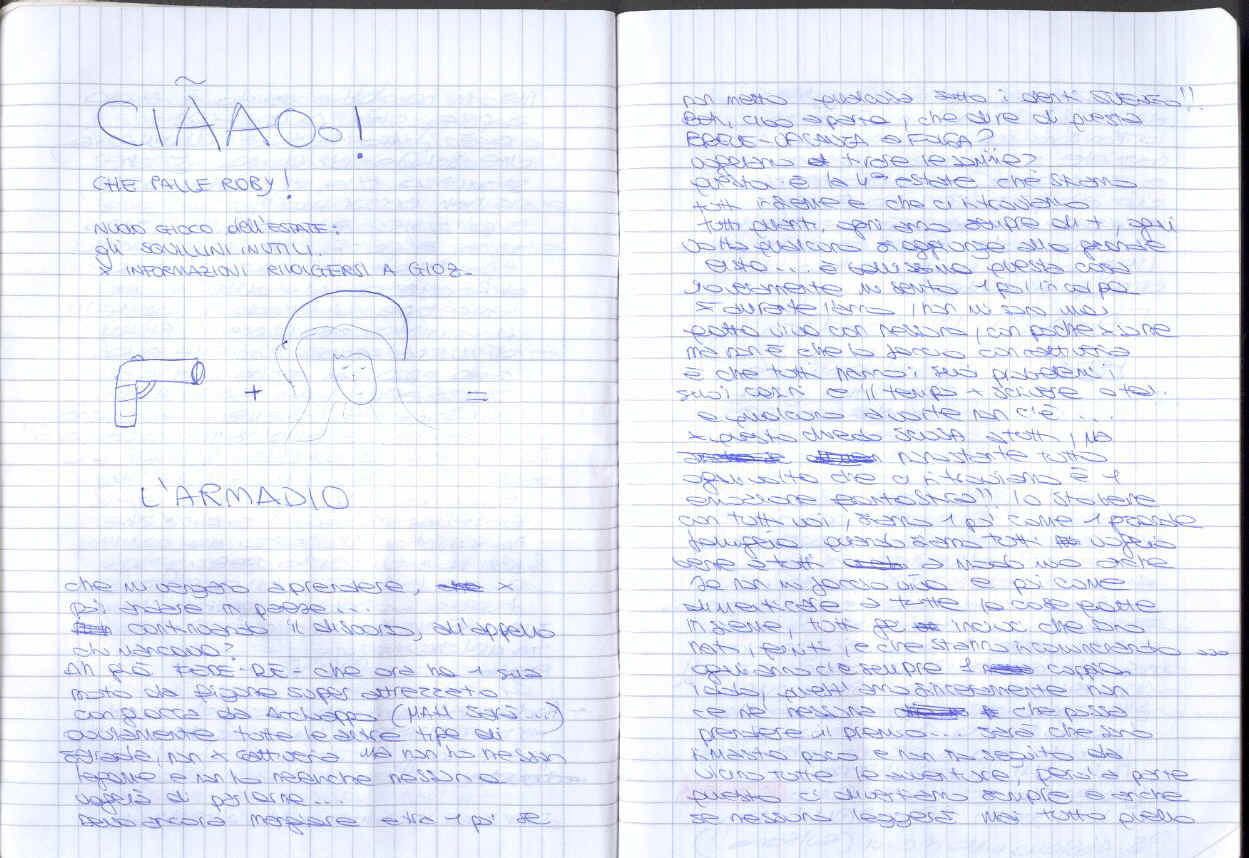 CIÃAOo!
CHE PALLE ROBY!
NUOVO GIOCO dell'ESTATE:
gli SQUILLINI INUTILI..
X INFORMAZIONI RIVOLGERSI A GIOZ-
+ =
L'ARMADIO
che mi vengano a prendere, x
poi andare in paese...
continuando il discorso, all'appello
chi mancava?
Ah già FEDE-RE- che ora ha 1 sua
moto da figone super attrezzato
con giacca da (MAH sarà...)
ovviamente tutte le altre tipe di
strada, non x cattiveria ma non ho nessun
legame e non ho neanche nessuna
voglia di parlarne...
devo ancora mangiare e tra 1 po' se
non metto qualcosa sotto i denti SVENGO!!
Beh, cibo a parte, che dire di questa
BREVE-VACANZA a
vogliamo tirare le somme?
questa è la 4ª estate che stiamo
tutti insieme e che ci ritroviamo
tutti quanti, ogni anno sempre di +, ogni
volta qualcuno si aggiunge alla grande
... è bellissima questa cosa
sinceramente mi sento 1 po' in colpa
x durante l'anno, non mi sono mai
fatta viva con nessuno, con poche xsone
ma non è che lo faccio con cattiveria
è che tutti hanno i suoi problemi,
suoi casini e il tempo x
e qualcuno a volte non c'è...
x questo chiedo SCUSA a tutti, MA
nonostante tutto
ogni volta che ci ritroviamo è 1
emozione fantastica!! Io sto bene
con tutti voi, siamo 1 po' come 1 grande
famiglia quando siamo tutti voglio
bene a tutti a modo mio anche
se non mi faccio viva e poi come
dimenticare a tutte le cose fatte
insieme, tutti gli inciuci che sono
nati, finiti, e che stanno incominciando ...
ogni anno c'è sempre 1 coppia
quest'anno sinceramente non
ce n'è nessuna che possa
prendere il premio... sarà che sono
rimasta poco e non ho seguito da
vicino tutte le avventure, però a parte
questo ci divertiamo sempre e anche
se nessuno leggerà mai tutto quello